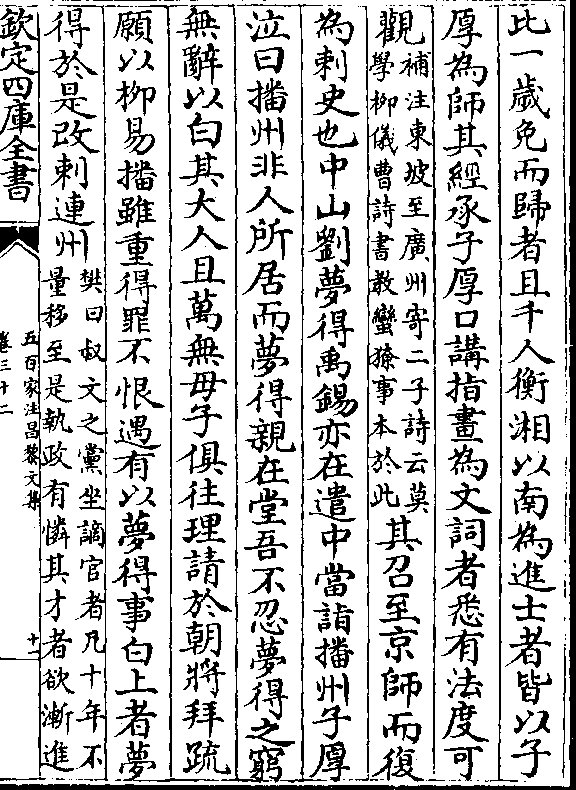 此一歲免而歸者且千人衡湘以南為進士者皆以子
厚為師其經承子厚口講指畫為文詞者悉有法度可
觀
補注東坡至廣州寄二子詩云莫
學柳儀曹詩書教蠻獠事本於此
其召至京師而復
為刺史也中山劉夢得禹錫亦在遣中當詣播州子厚
泣曰播州非人所居而夢得親在堂吾不忍夢得之窮
無辭以白其大人且萬無母子俱往理請於朝將拜疏
願以柳易播雖重得罪不恨遇有以夢得事白上者夢
得於是改刺連州
樊曰叔文之黨坐謫官者凡十年不
量移至是執政有憐其才者欲漸進
欽定四庫全書
五百家注昌黎文集
卷三十二
十一